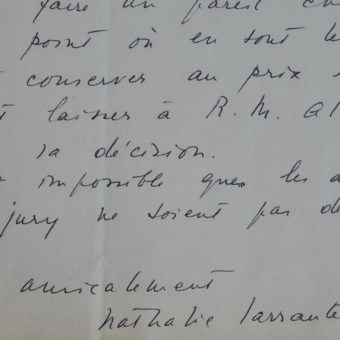 faire un pareil ch
point où en sont le
conserver au prix
t laisser à R.M. al
sa décision.
impossible que les a
jury ne soient pas de
amicalement
Nathalie Sarraute